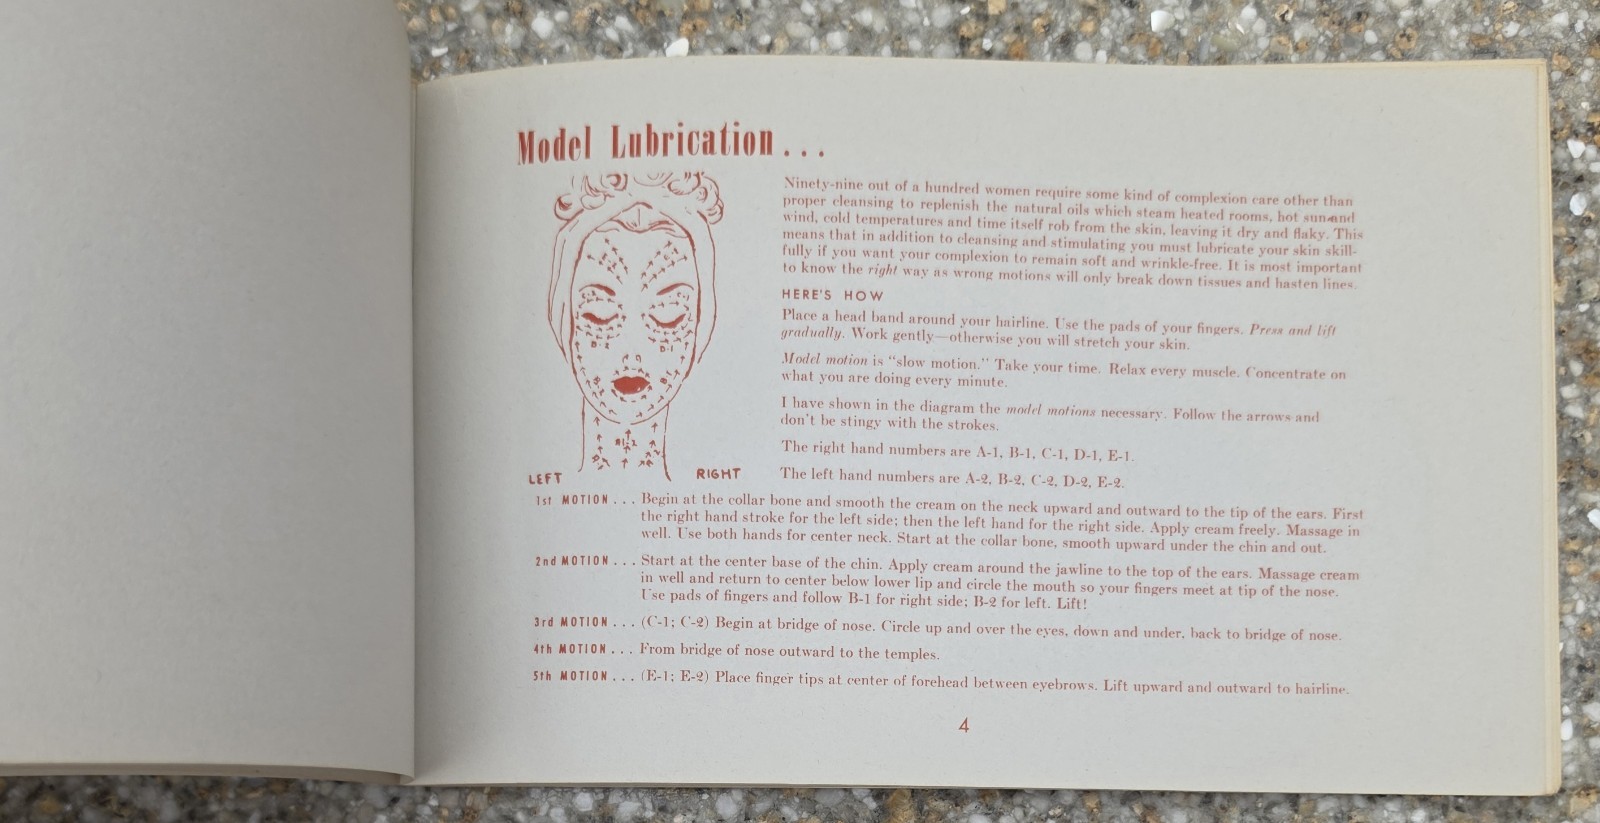 Model Lubrication...
Ninety-nine out of a hundred women require some kind of complexion care other than
proper cleansing to replenish the natural oils which steam heated rooms, hot sun and
wind, cold temperatures and time itself rob from the skin, leaving it dry and flaky. This
means that in addition to cleansing and stimulating you must lubricate your skin skill-
fully if you want your complexion to remain soft and wrinkle-free. It is most important
to know the right way as wrong motions will only break down tissues and hasten lines.
HERE'S HOW
Place a head band around your hairline. Use the pads of your fingers. Press and lift
gradually. Work gently—otherwise you will stretch your skin.
Model motion is "slow motion." Take your time. Relax every muscle. Concentrate on
what you are doing every minute.
I have shown in the diagram the model motions necessary. Follow the arrows and
don't be stingy with the strokes.
The right hand numbers are A-1, B-1, C-1, D-1, E-1.
The left hand numbers are A-2, B-2, C-2, D-2, E-2.
D-2
D-1
LEFT
RIGHT
1st MOTION... Begin at the collar bone and smooth the cream on the neck upward and outward to the tip of the ears. First
the right hand stroke for the left side; then the left hand for the right side. Apply cream freely. Massage in
well. Use both hands for center neck. Start at the collar bone, smooth upward under the chin and out.
2nd MOTION... Start at the center base of the chin. Apply cream around the jawline to the top of the ears. Massage cream
in well and return to center below lower lip and circle the mouth so your fingers meet at tip of the nose.
Use pads of fingers and follow B-1 for right side; B-2 for left. Lift!
3rd MOTION... (C-1; C-2) Begin at bridge of nose. Circle up and over the eyes, down and under, back to bridge of nose.
4th MOTION... From bridge of nose outward to the temples.
5th MOTION... (E-1; E-2) Place finger tips at center of forehead between eyebrows. Lift upward and outward to hairline.
4